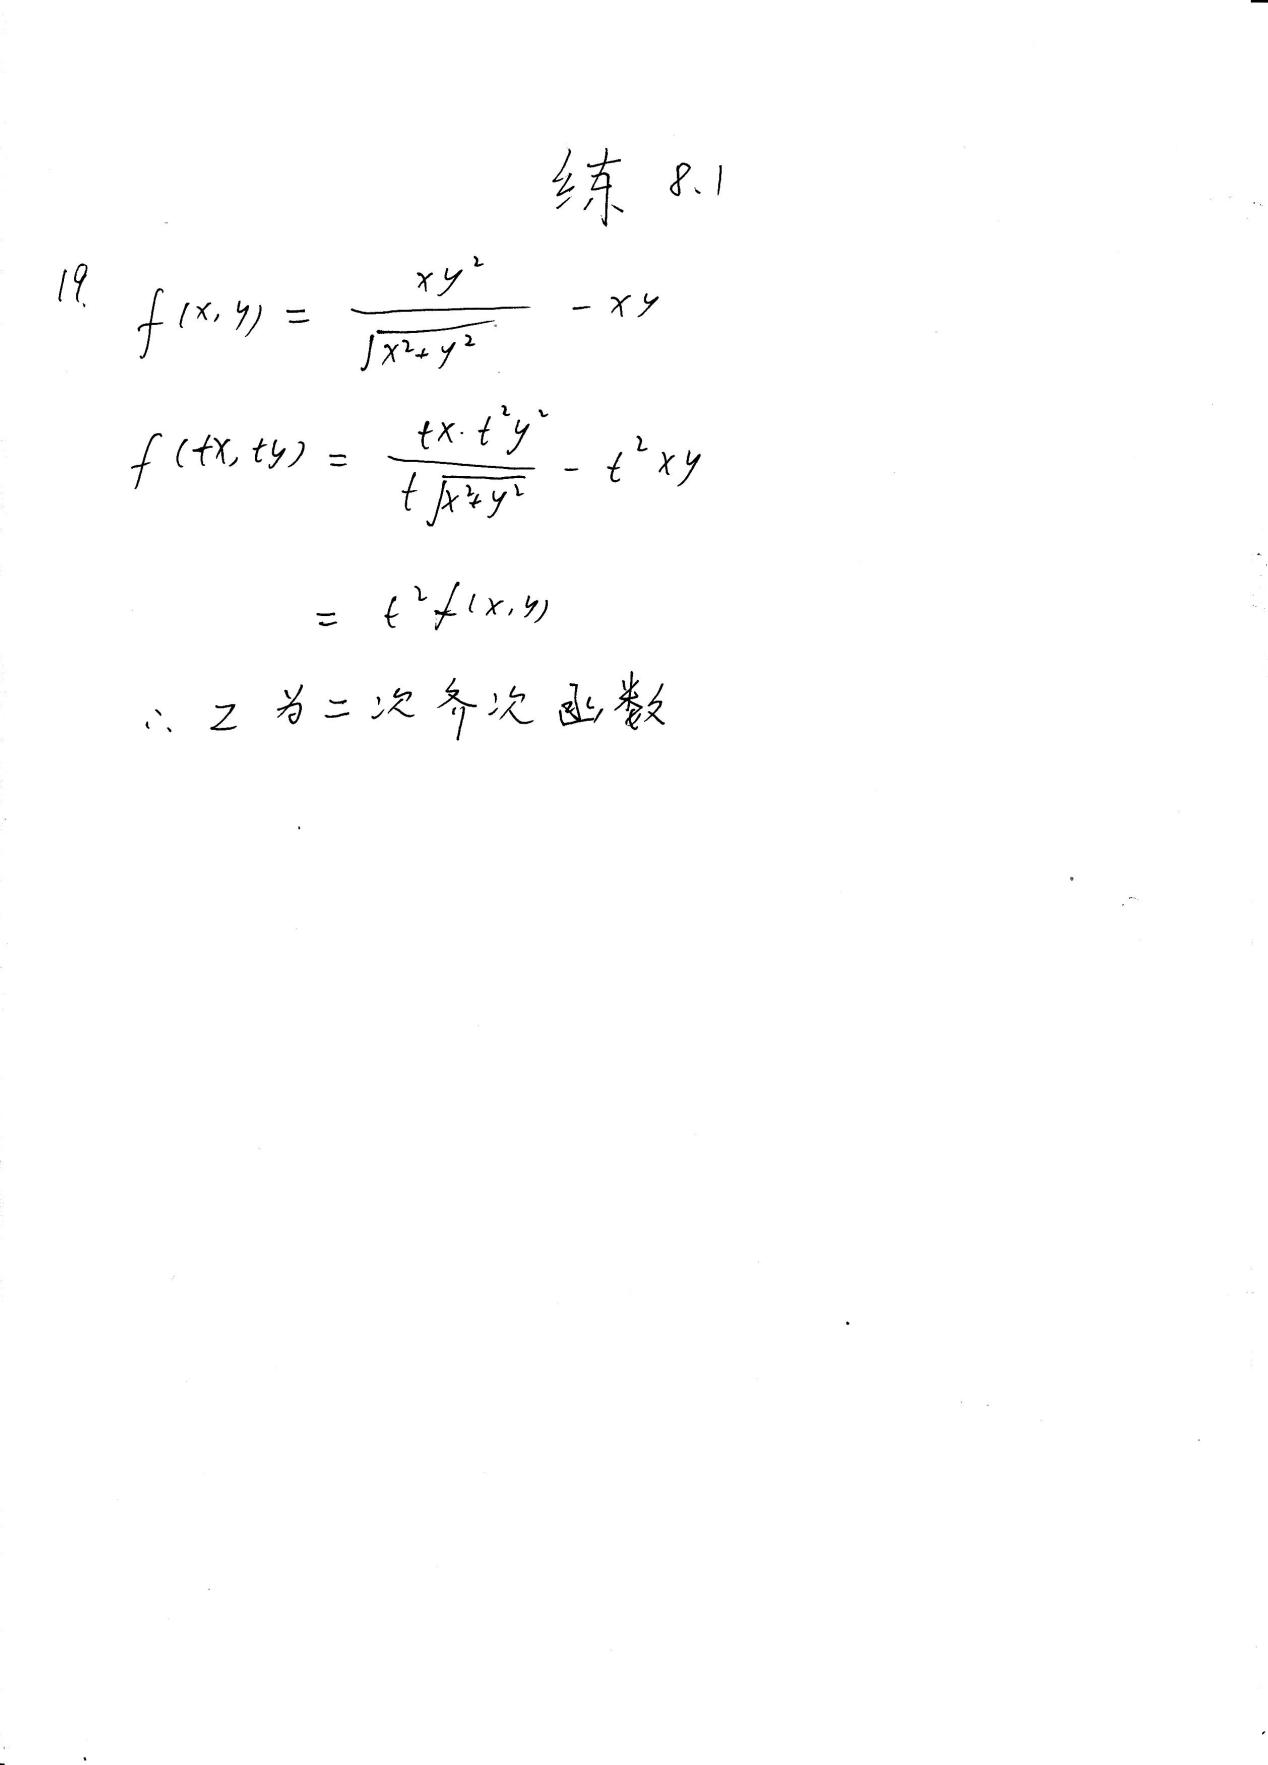 练 8.1
19. f(x,y) = \frac{xy^2}{\sqrt{x^2+y^2}} - xy
f(tx,ty) = \frac{tx·t^2y^2}{t\sqrt{x^2+y^2}} - t^2xy
= t^2f(x,y)
∴ z 为二次齐次函数